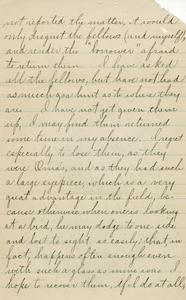 not reported the matter, it would
only disgust the fellows (and myself)
and render the "borrower" afraid
to return them. I have asked
all the fellows, but have not had
as much as a hint as to where they
are. I have not yet given them
up, I may find them returned
some time in my absence. I regret
especially to lose them, as they
were Xmas, and as they had such
a large eyepiece, which is a very
great advantage in the field, be-
cause otherwise, when one is looking
at a bird, he may dodge to one side
and be lost to sight so easily; that in
fact, happens often enough even
with such a glass as mine was. I
hope to recover them, if I do at all,